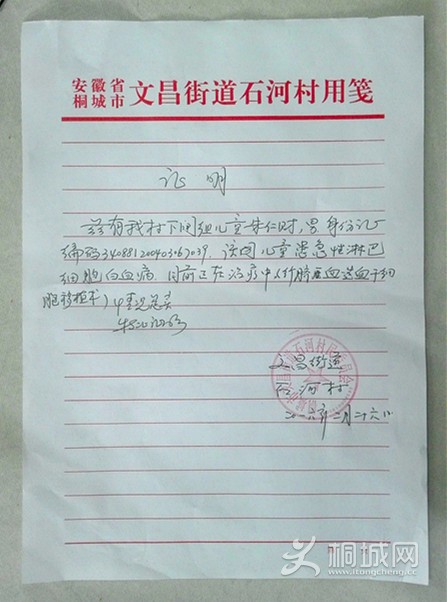 安徽省
桐城市
文昌街道石河村用笺
证明
兹有我村下河组儿童朱仁时,男,身份证
编码34088120040367039,该同儿童患急性淋巴
细胞白血病,目前正在治疗中(脐血造血干细
胞移植术)
特此证明
文昌街道
石河村
二〇一六年二月二十六日
桐城网
www.itongcheng.cc